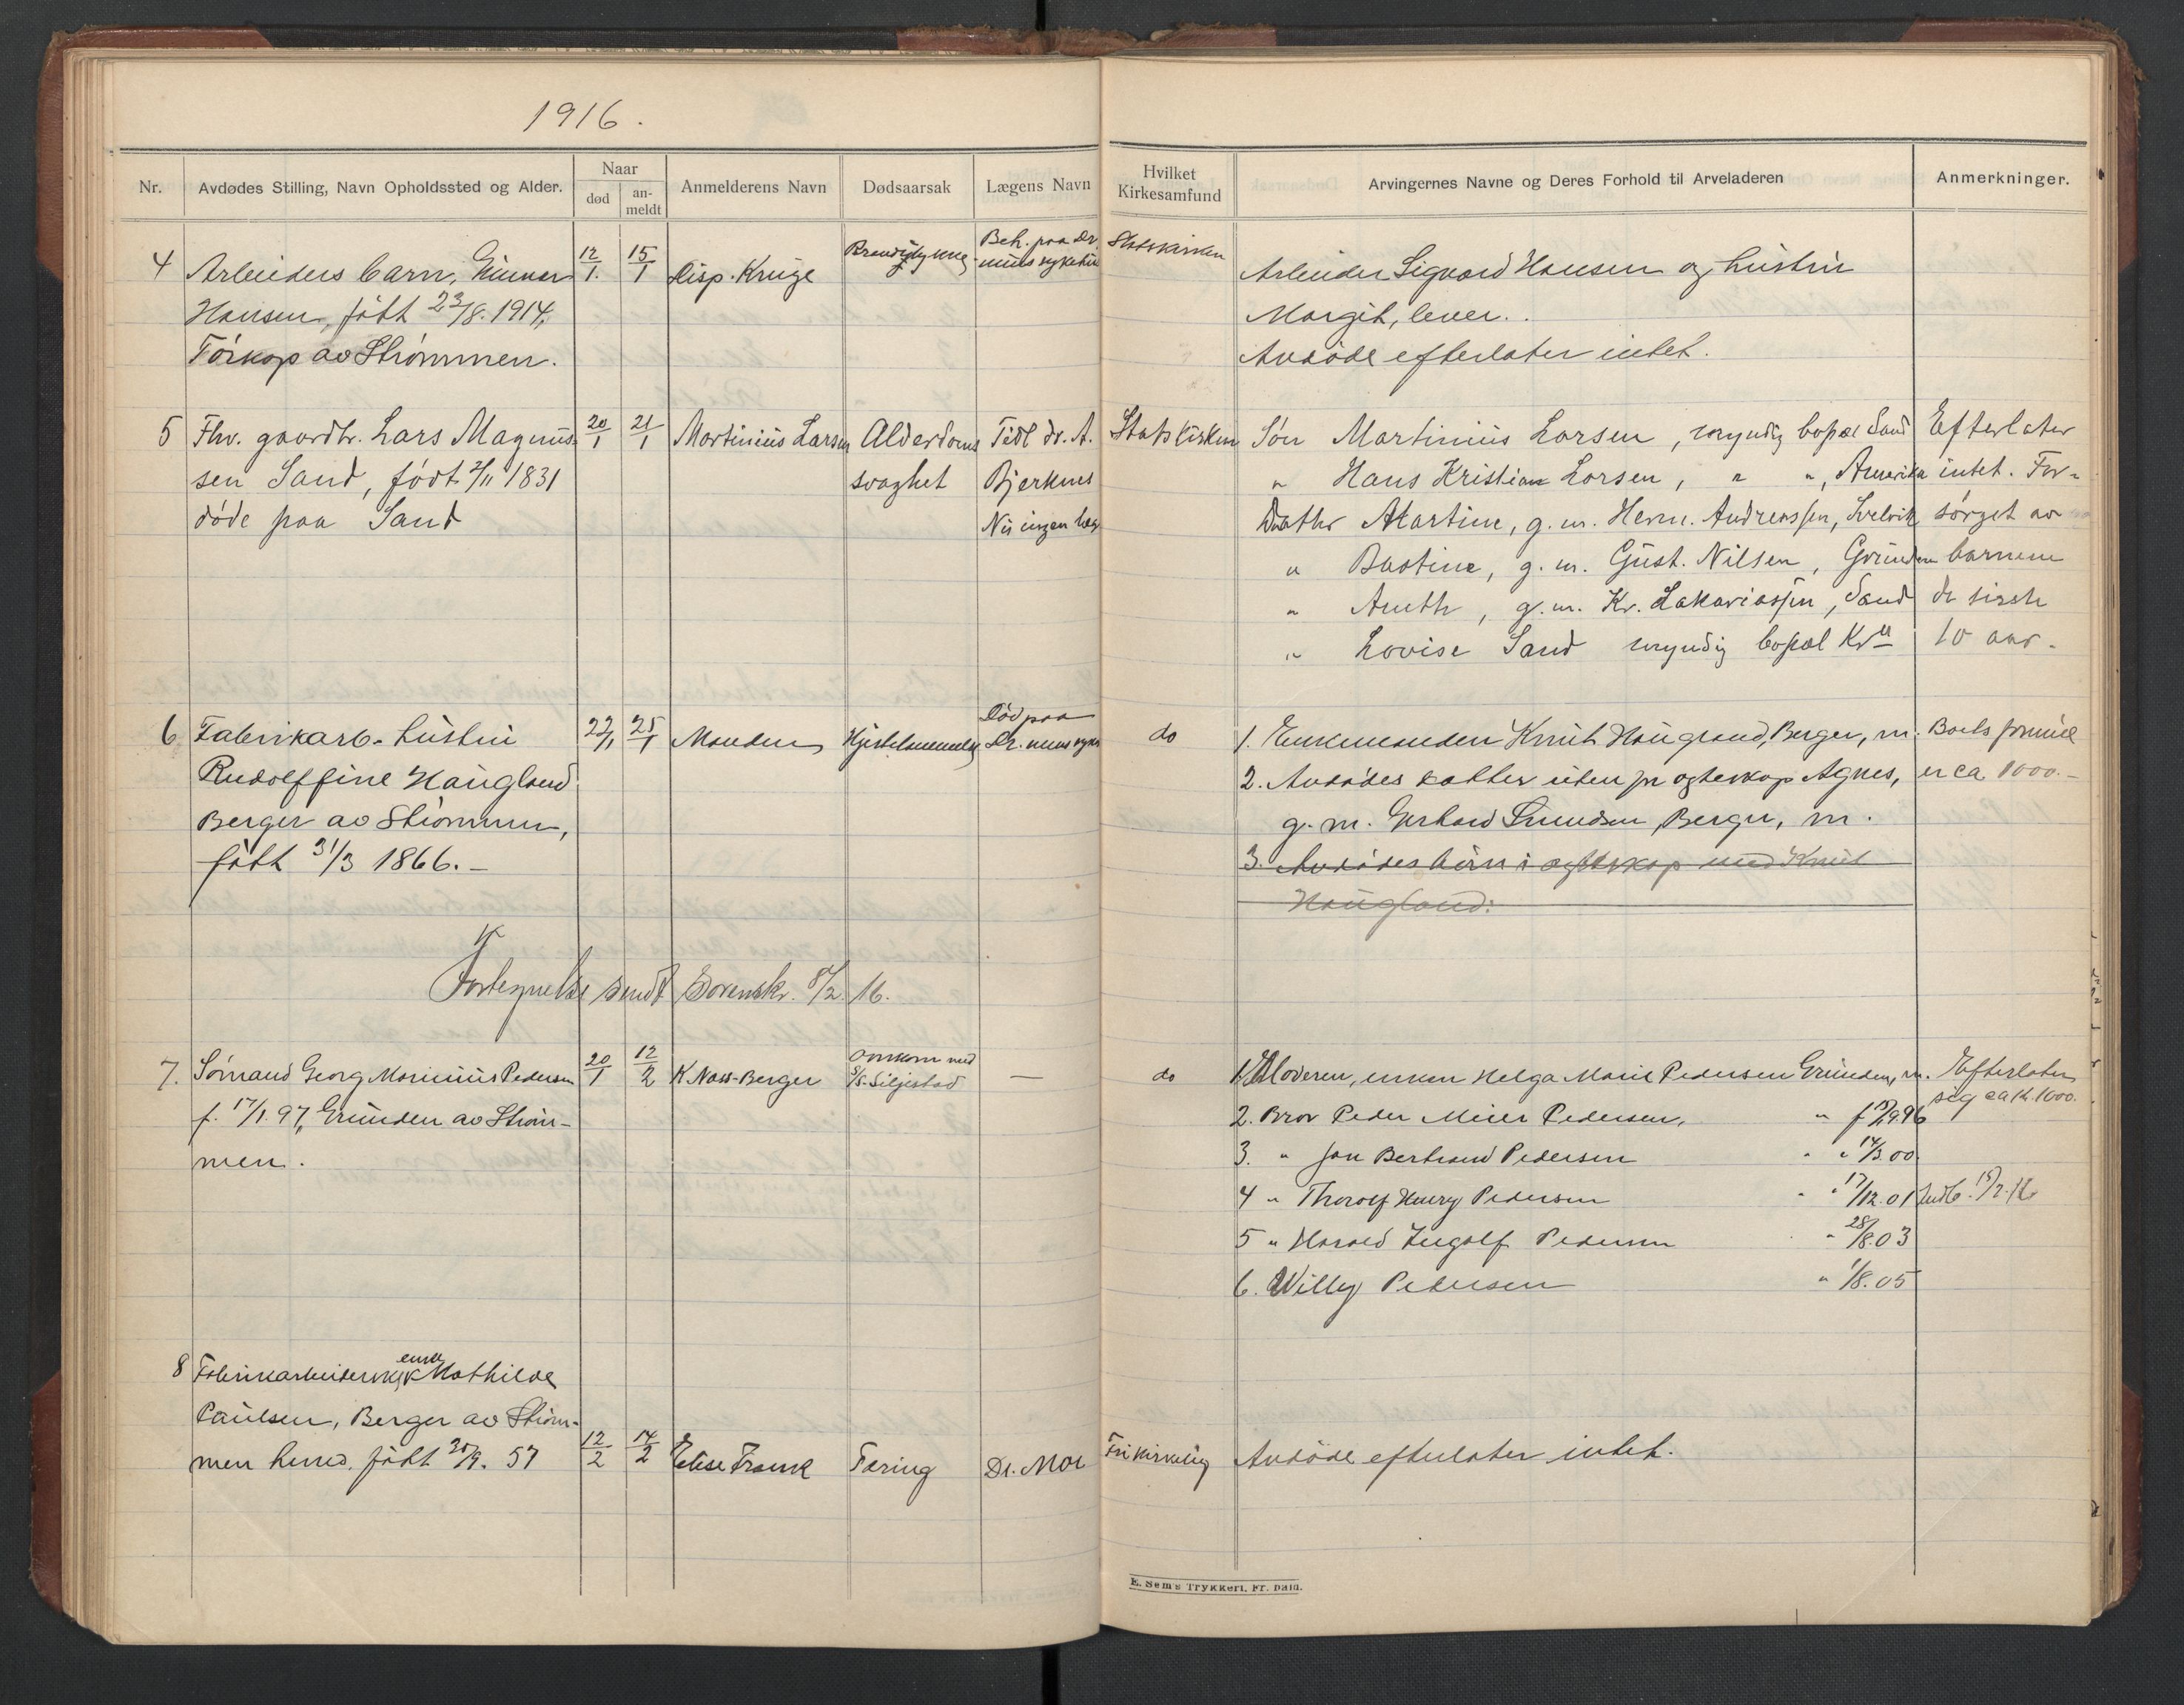 1916.
Nr.
Avdødes Stilling, Navn Opholdssted og Alder.
Naar
død
an-
meldt
Anmelderens Navn
Dødsaarsak
Lægens Navn
Hvilket
Kirkesamfund
Arvingernes Navne og Deres Forhold til Arveladeren
Anmerkninger.
4 Arbeiders barn, Gunnar
Hansen, født 23/8. 1914,
Tørkop av Strømmen.
12/1.
15/1
Disp. Kruge
Beh. paa Dr.
Statskirken
Arbeider Sigvard Hansen og hustru
Margit, lever.
Avdøde efterlater intet.
5 Fhv. gaardbr. Lars Magnus-
sen Sand, født 2/11 1831
døde paa Sand
20/1
21/1
Martinius Larsen
Alderdoms
svaghet
Tidl dr. A.
Bjerknes
Nu ingen læge
Statskirken
Søn Martinius Larsen, myndig bopæl Sand
" Hans Kristian Larsen, " ", Amerika
Datter Martine, g. m. Herm. Andreassen, Svelvik
" Bastine, g. m. Gust. Nilsen, Grunden
" Anethe, g. m. Kr. Zakariassen, Sand
" Lovise Sand myndig bopæl Kra
Efterlater
intet. For-
sørget av
barnene
de siste
10 aar.
6 Fabrikarb. hustru
Rudolffine Haugland
Berger av Strømmen,
født 31/3 1866.-
22/1
25/1
Manden
Død paa
do
1. Enkemanden Knut Haugland, Berger, m.
2. Avdødes datter uten for egteskap Agnes,
g. m. Gerhard Smedsen Berger, m.
3. Avdødes børn i egteskap med Knut
Haugland:
Boets formue
er ca 1000.-
Fortegnelse sendt Sorenskr. 8/2. 16.
7. Sømand Georg Marinius Pedersen
f. 17/1. 97, Grunden av Strøm-
men.
20/1
12/2
K Nass-Berger
Omkom med
S/S. Siljestad
—
do
1. Moderen, enken Helga Marie Pedersen Grunden, m.
2. Bror Peder Meier Pedersen, " f 15/9.96
3. " Jon Bertrand Pedersen " " 14/3.00
4 " Thorolf Henry Pedersen " " 17/12.01
5 " Harald Ingolf Pedersen " 28/8.03
6. Willy Pedersen " 1/8.05
Efterlater
sig ca k. 1000.
Indb. 15/2.16
8 Fabrikarbeiderske enke Mathilde
Paulsen, Berger av Strøm-
men herred, født 30/9. 57
12/2
14/2
Elise Frank
Tæring
Dr. Moe
Frikirkelig
Avdøde efterlater intet.
E. Sem's Trykkeri, Fr. hald.